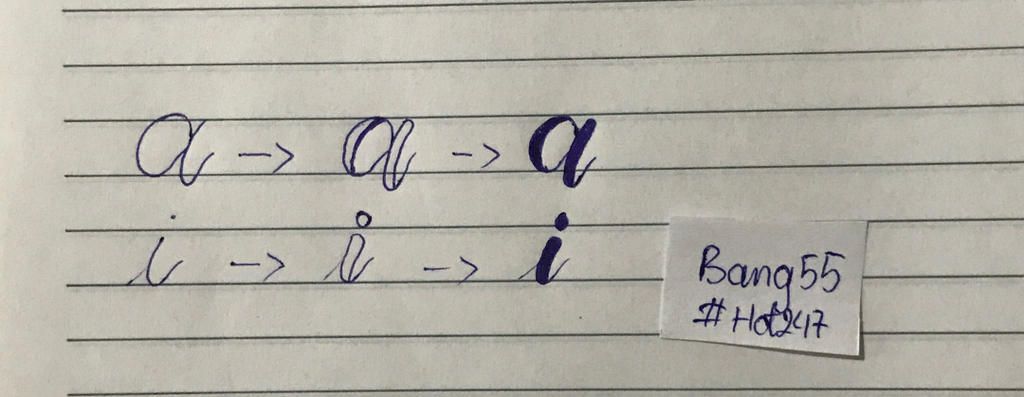 a -> a -> a
i -> i -> i
Bang55
#Hot247